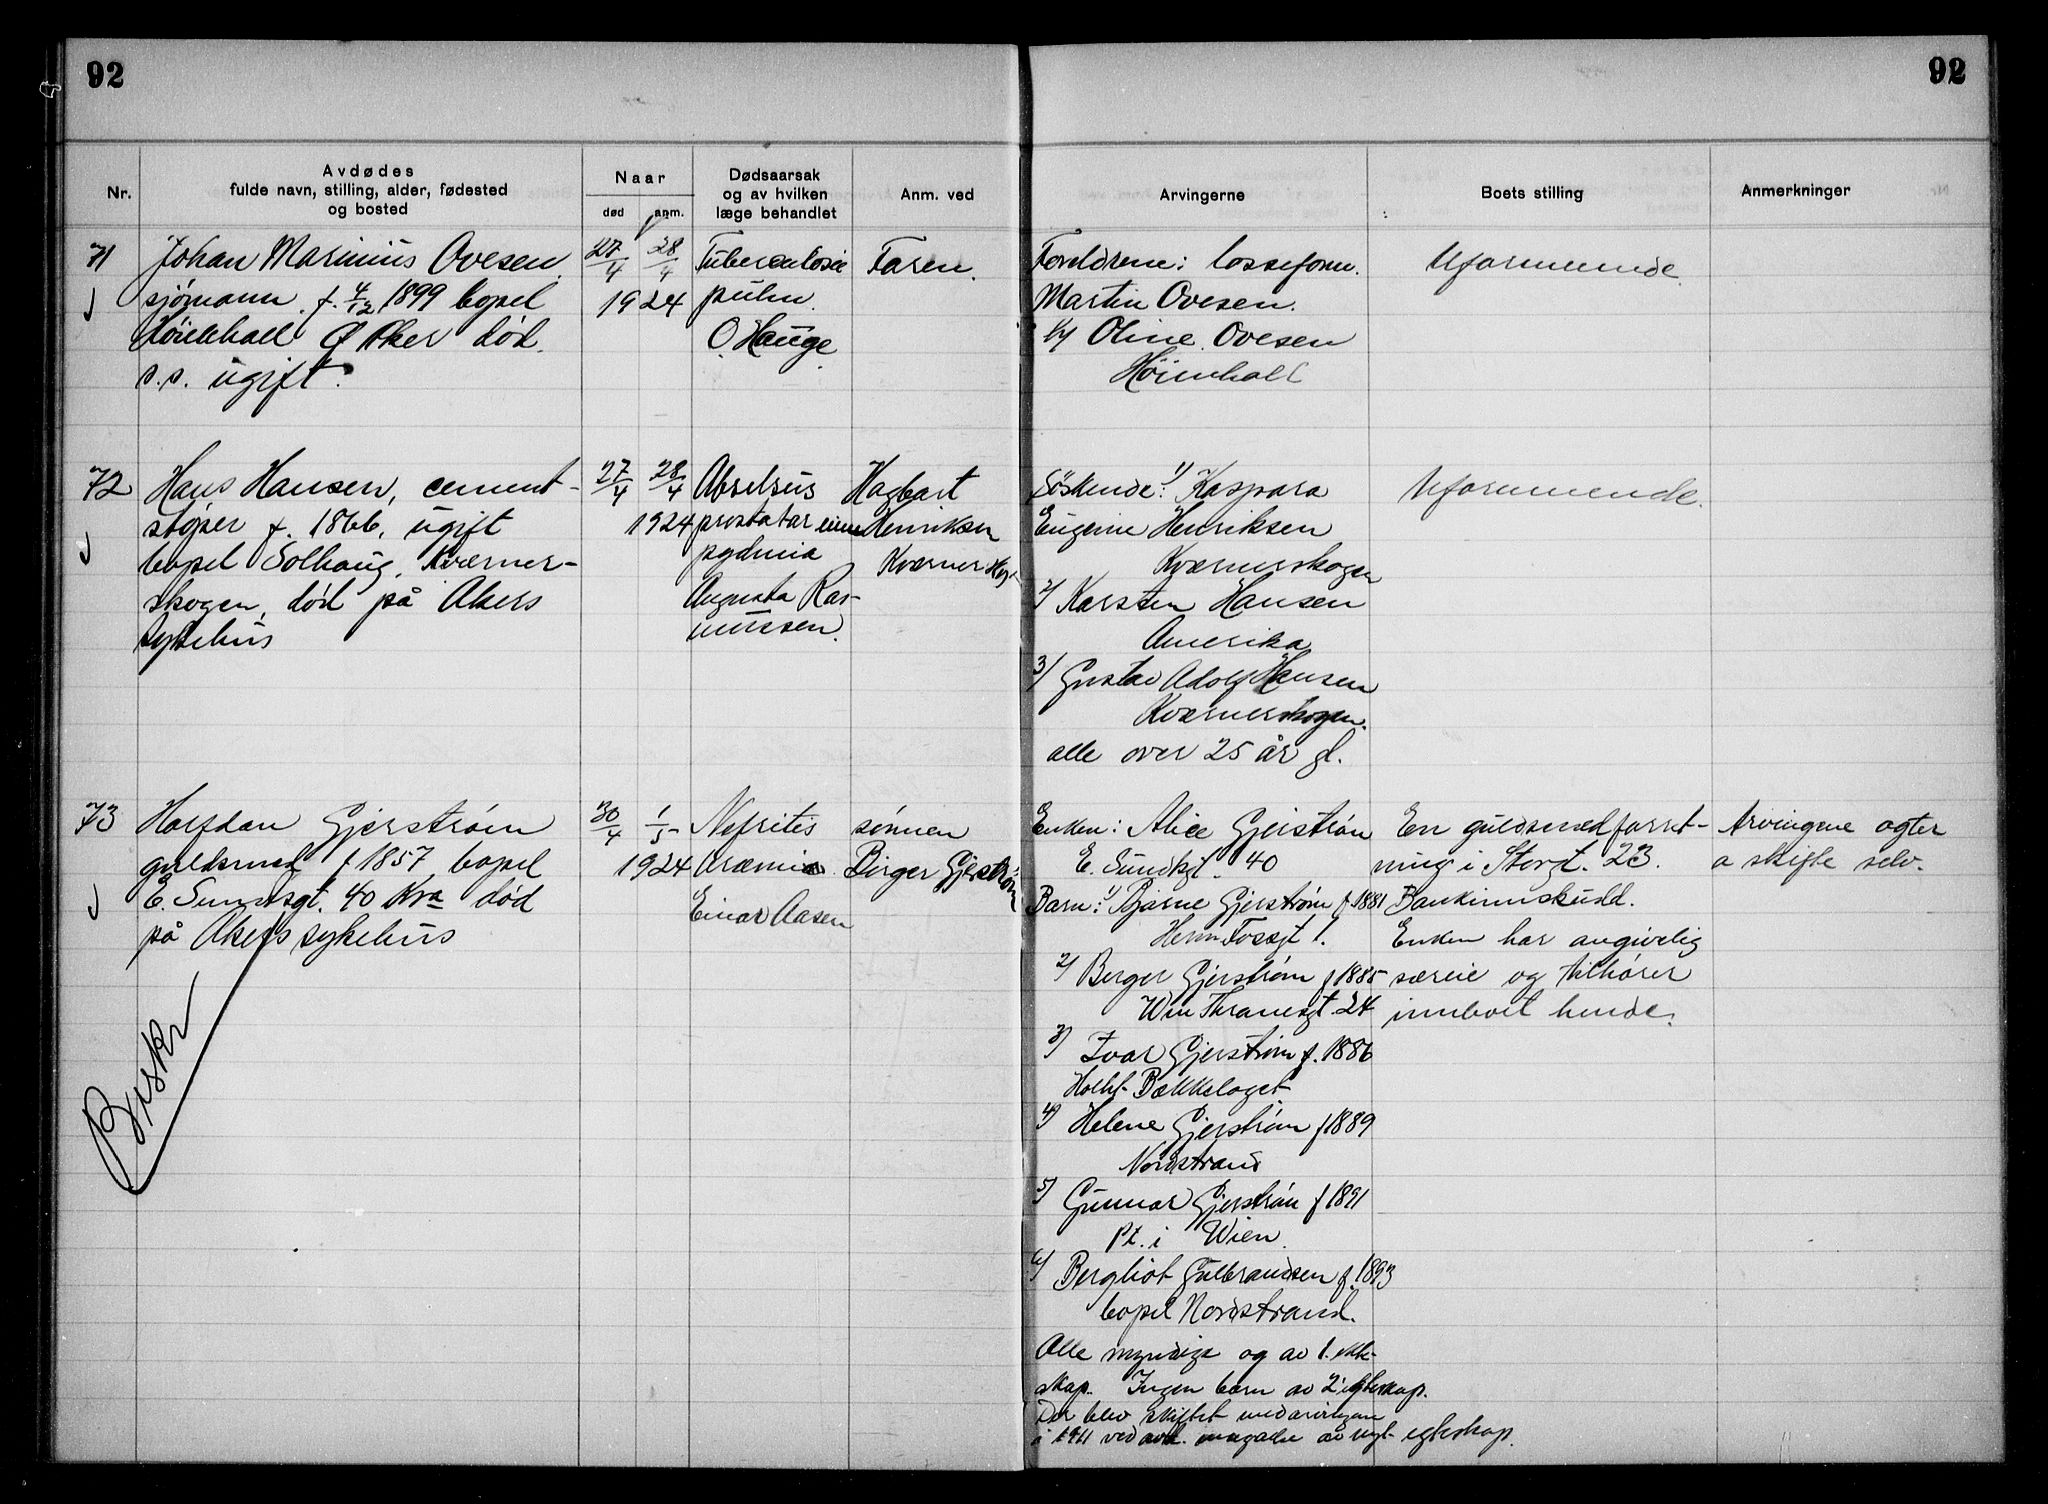 92
92
Nr.
Avdødes
fulde navn, stilling, alder, fødested
og bosted
Naar
død
anm.
Dødsaarsak
og av hvilken
læge behandlet
Anm. ved
Arvingerne
Boets stilling
Anmerkninger
71
Johan Marinius Ovesen
sjømann. f. 4/12 1899 bopel
Ø Aker død
s.s. ugift.
27/4 28/4
1924
Tuberculosis
pulm.
O. Hauge.
Faren.
Foreldrene: losseform.
Martin Ovesen.
Oline Ovesen
Uformuende.
72
Hans Hansen, cement-
støper f. 1866, ugift
bopel Solhaug, Kværner-
skogen, død på Akers
sykehus
27/4 28/4
1924
prostatae
Augusta Ras-
mussen.
Hagbart
Henriksen
Kværnerskog
Søskende: 1/ Kaspara
Eugenie Henriksen
Kværnerskogen
2/ Karsten Hansen
Amerika
3/ Gustav Adolf Hansen
Kværnerskogen.
alle over 25 år gl.
Uformuende.
73
Halfdan Gjerstrøm
guldsmed f 1857 bopel
E. Sundtsgt. 40 Kra død
på Akers sykehus
30/4 1/5
1924
Nefritis
Uræmia.
Einar Aasen
sønnen
Birger Gjerstrøm
Enken: Alice Gjerstrøm
E. Sundtsgt. 40
Barn: 1/ Bjarne Gjerstrøm f. 1881
Herm Fossgt 1.
2/ Berger Gjerstrøm f 1885
Wm Thranesgt. 24
3/ Ivar Gjerstrøm f. 1886
Bækkelaget.
4/ Helene Gjerstrøm f 1889
Nordstrand
5/ Gunnar Gjerstrøm f 1891
Pt. i Wien.
6/ Bergliot Gulbrandsen f. 1893
bopel Nordstrand.
Alle myndige og av 1. ekte-
skap. Ingen barn av 2' egteskap.
Der blev skiftet med arvingene
i 1911 ved inngaaelse av nyt egteskap.
En guldsmedforret-
ning i Storgt. 23.
Bankinnskudd.
Enken har angivelig
særeie og tilhører
innboet hende.
Arvingene agter
a skifte selv.